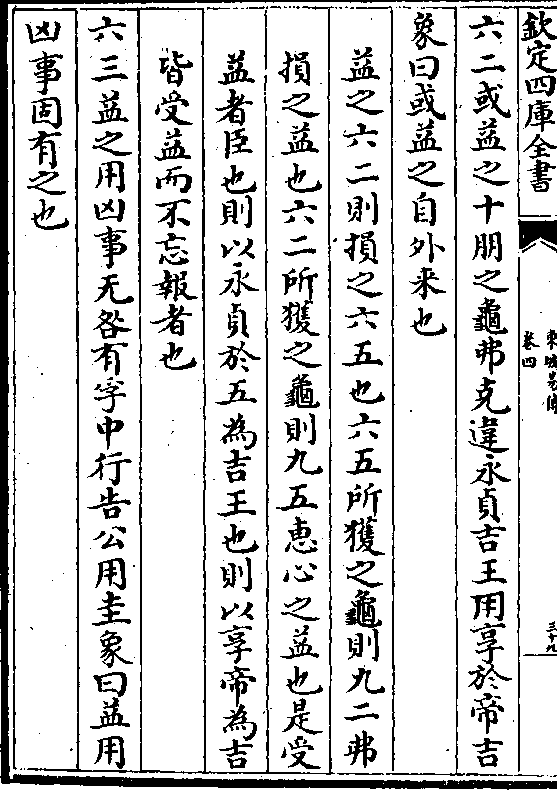 欽定四庫全書
東坡易傳
卷四
三十九
六二或益之十朋之龜弗克違永貞吉王用享於帝吉
象曰或益之自外来也
益之六二則損之六五也六五所獲之龜則九二弗
損之益也六二所獲之龜則九五恵心之益也是受
益者臣也則以永貞於五為吉王也則以享帝為吉
皆受益而不忘報者也
六三益之用凶事无咎有孚中行告公用圭象曰益用
凶事固有之也